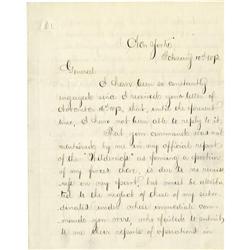 New York
February 10th 1872
General
I have been so constantly
engaged since I received your letter of
November that, until the present
time, I have not been able to reply to it.
That your command was not
mentioned by me in my official report
of the "Wilderness" as forming a portion
of my forces there, is due to no
on my part, but must be
to the neglect of those of my
under whose immediate
you were, who failed to
me their reports of operations in